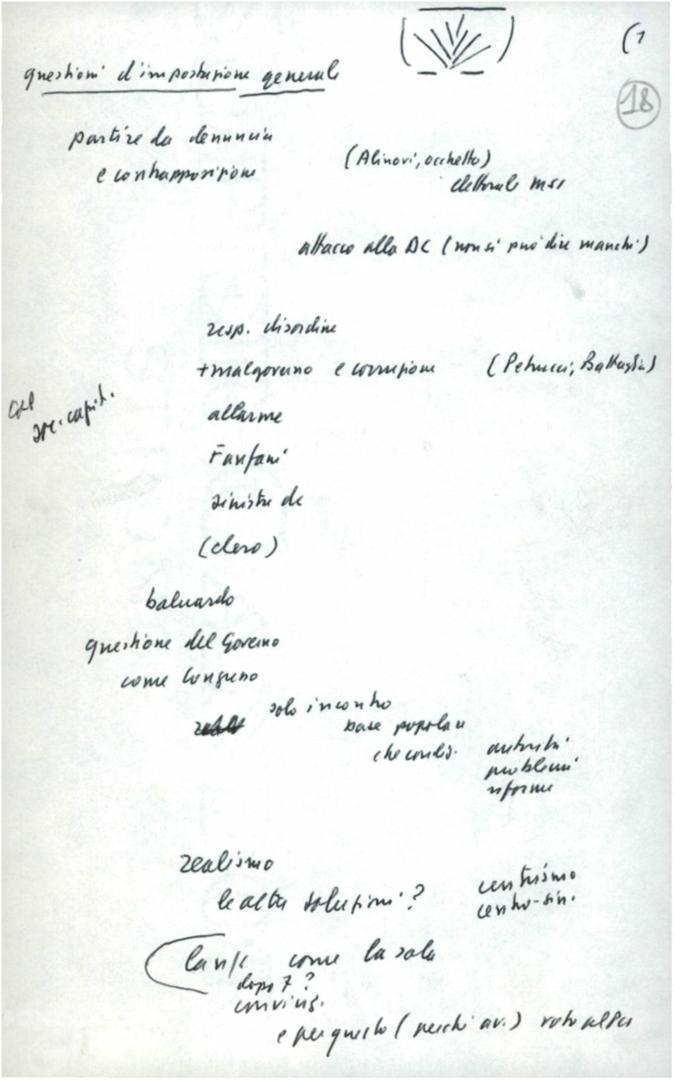 (1
18
questioni d'impostazione generale
partire da denuncia
e contrapposizione
(Alinovi, occhetto)
elettorale msi
attacco alla DC (non si può dire manchi)
resp. disordine
+malgoverno e corruzione (Petrucci, Battaglia)
capit.
allarme
Fanfani
sinistre dc
(clero)
baluardo
questione del Governo
come Congresso
solo incontro
base popolare
che condiz.
autorità
problemi
riforme
realismo
le altre soluzioni?
centrismo
centro-sin.
come la sola
dopo 7?
convinz.
e per questo (perché av.) voto al PCI